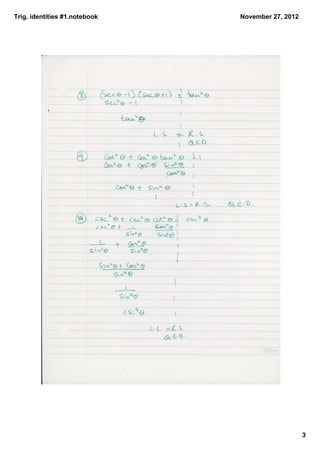 Trig. identities #1.notebook
November 27, 2012
⑧ (sec θ -1) (sec θ +1) = tan²θ
sec²θ -1
tan²θ
L.S = R.S
Q.E.D.
⑨ Cos²θ + Cos²θ tan²θ = 1
Cos²θ + Cos²θ Sin²θ
Cos²θ
Cos²θ + Sin²θ
1
L.S = R.S. Q.E.D.
⑩ csc²θ + csc²θ cot²θ = csc⁴θ
csc²θ + 1 Cos²θ
Sin²θ Sin²θ
1 + Cos²θ
Sin²θ Sin⁴θ
Sin²θ + Cos²θ
Sin⁴θ
1
Sin⁴θ
csc⁴θ
L.S. = R.S
Q.E.D.
3